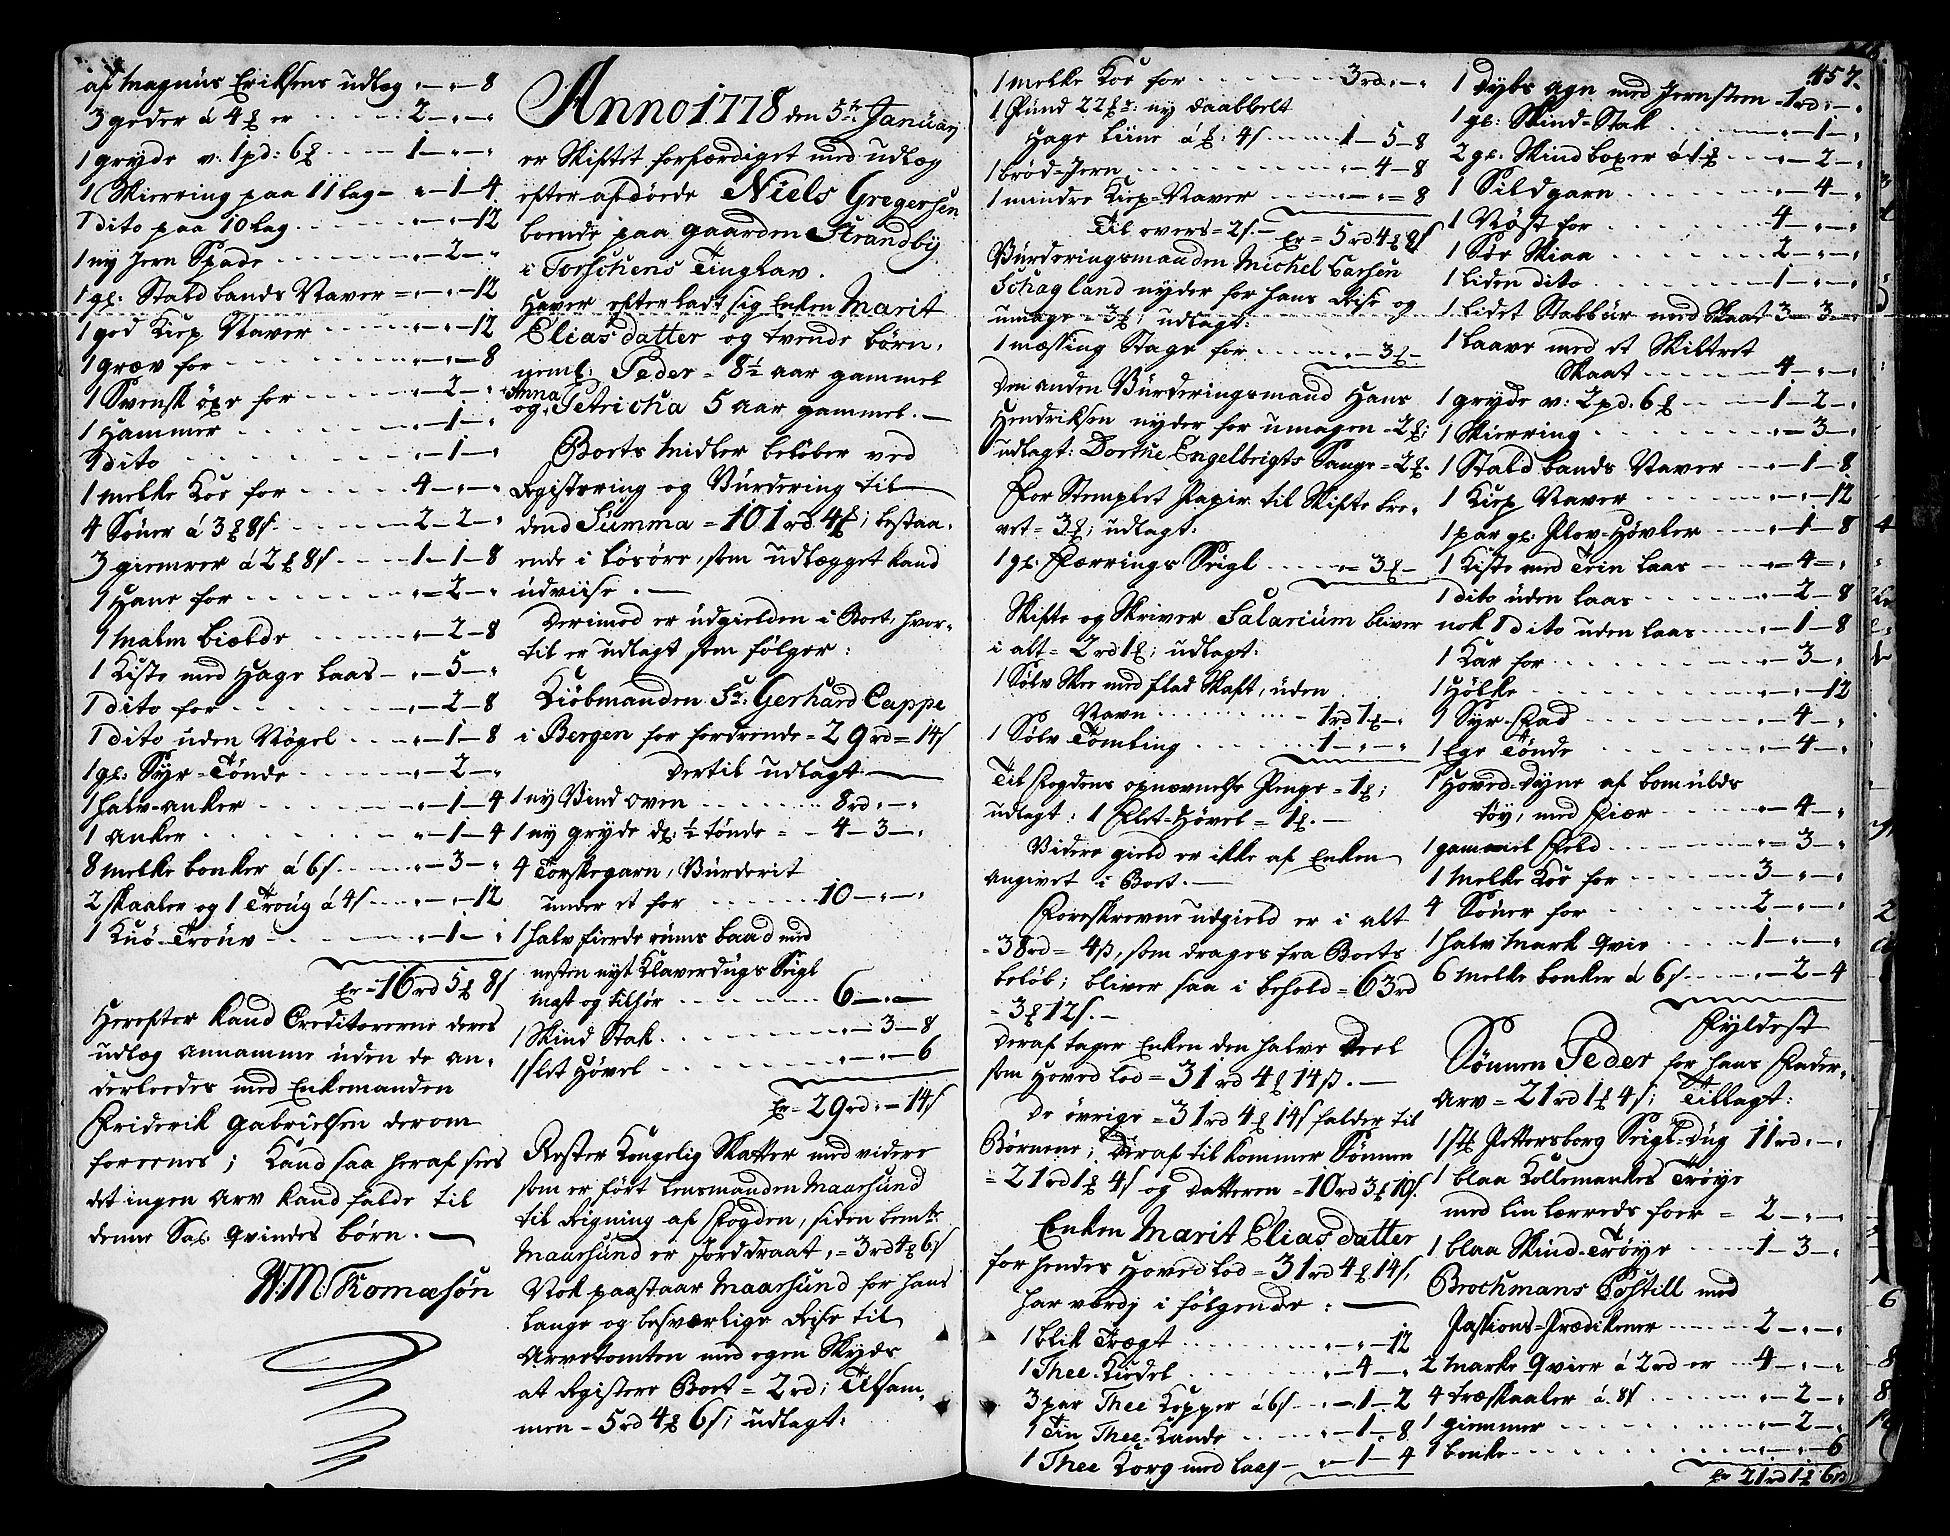 af Magnus Eriksens udlæg „ - „ - 8
3 geder á 4 ꝑ er . . . 2 - „ - „
1 gryde v: 1 pd: 6 ꝑ . . . 1 - „ - „
1 Skierring paa 11 lag - „ - 1 - 4
1 dito paa 10 lag . . . „ - „ - 12
1 ny Jern Spade . . . „ - 2 - „
1 gl: Stald bands Naver = „ - „ - 12
1 god Kiep Naver . . . „ - „ - 12
1 græv for . . . „ - „ - 8
1 Svensk öxe for . . . „ - 2 - „
1 Hammer . . . „ - 1 - „
1 dito . . . „ - 1 - „
1 Melke Koe for . . . 4 - „ - „
4 Söuer á 3 ꝑ 8 s . . . 2 - 2 - „
3 giemrer á 2 ꝑ 8 s . . . 1 - 1 - 8
1 Hane for . . . „ - 2 - „
1 Malm biælde . . . „ - 2 - 8
1 Kiste med Hage laas - „ - 5 - „
1 dito for . . . „ - 2 - 8
1 dito uden Nögel . . . „ - 1 - 8
1 gl: Syr-Tönde . . . „ - 2 - „
1 halv-anker . . . „ - 1 - 4
1 Anker . . . „ - 1 - 4
8 melke bonker á 6 s . . . „ - 3 - „
2 skaaler og 1 Troug á 4 s . . . „ - „ - 12
1 Knö-Trouv . . . „ - 1 - „
Er = 16 rd 5 ꝑ 8 s
Herefter kand Creditorerne deres
udlæg annamme uden de an-
derledes med Enkemanden
Friderik Gabrielsen derom
foreenes; Kand saa heraf sees
det ingen Arv kand falde til
denne Sal. Qvindes börn. -
N: M: Thomæsön
Anno 1778 den 5te January
er Skiftet forfærdiget med udlæg
efter afdöde Niels Gregersen
boende paa gaarden Strandbÿ
i Torschens Tinglav.
Haver efterladt sig Enken Marit
Elias datter og tvende börn,
neml: Peder = 8 ½ aar gammel
Anna
og Petricha 5 aar gammel. -
Boets Midler belöber ved
Registering og Vurdering til
dend Summa = 101 rd 4 ꝑ; bestaa-
ende i lösöre, som udlægget kand
udviise. -
Derimod er udgielden i Boet, hvor-
til er udlagt som fölger:
Kiöbmanden Sr: Gerhard Cappe
i Bergen for fordrende = 29 rd = 14 s
dertil udlagt
1 ny Bind Oven . . . 8 rd: - „
1 ny gryde dl: ½ tönde = - 4 - 3 - „
4 Torskegarn, Vurderit
under et for . . . 10 - „ - „
1 halv fierde rums baad med
nesten nyt Klaverdugs Seigl
Mast og tilhör . . . 6 - „ -
1 Skind Stak . . . „ - 3 - 8
1 slet Hövel . . . „ - „ - 6
Er = 29 rd: = 14 s
Rester Kongelig Skatter med videre
som er fört Lensmanden Maarsund
til Rigning af Fogden, siden bemte
Maarsund er Jorddraat, = 3 rd 4 ꝑ 6 s
Nok paastaar Maarsund for hans
lange og besværlige Reise til
Arvetomten med egen Skyds
at Registere Boet = 2 rd; Tilsam-
men = 5 rd 4 ꝑ 6 s; udlagt:
1 melke Koe for . . . 3 rd: - „
1 Pund 22 ꝑr: ny daabbelt
Hage liine á ꝑ: 4 s . . . 1 - 5 - 8
1 bröd-Jern . . . „ - 4 - 8
1 mindre Kiep-Naver . . . „ - „ = 8
Til overs = 2 s - Er = 5 rd 4 ꝑ 8 s
Vurderingsmanden Michel Larsen
Schagland nyder for hans Reise og
umage = 3 ꝑ; udlagt:
1 messing Stage for . . . „ - 3 ꝑ -
Den anden Vurderingsmand Hans
Hendriksen nyder for umagen = 2 ꝑ;
udlagt: Dorthe Engelbrigts Sange = 2 ꝑ.
For Stemplet Papir til Skifte bre-
vet = 3 ꝑ; udlagt:
1 gl: Færrings Seigl . . . „ = 3 ꝑ -
Skifte og Skriver Salarium bliver
i alt = 2 rd 1 ꝑ; udlagt:
1 Sölv Skee med flad Skaft, uden
Navn . . . 1 rd 1 ꝑ - „
1 Sölv Tömling . . . 1 - „ - „
Til Fogdens opnævnelse Penge = 1 ꝑ;
udlagt: 1 Slet-Hövel = 1 ꝑ. -
Videre gield er ikke af Enken
angivet i Boet. -
Foreskrevne udgield er i alt
= 38 rd = 4 s, som drages fra Boets
belöb; bliver saa i behold = 63 rd
= 3 ꝑ 12 s. -
Deraf tager Enken den halve Deel
som Hoved lod = 31 rd 4 ꝑ 14 s. -
De övrige = 31 rd 4 ꝑ 14 s falder til
Börnene; Deraf til kommer Sönnen
= 21 rd 1 ꝑ 4 s og datteren = 10 rd 3 ꝑ 10 s.
Enken Marit Elias datter
for hendes Hoved lod = 31 rd 4 ꝑ 14 s,
har værdj i fölgende:
1 blik Trægt . . . „ - „ - 12
1 Thee-Kiedel . . . „ - 4 - „
3 par Thee Kopper á 6 s . . . „ - 1 - 2
1 Tin Thee-Kande . . . „ - 1 - 8
1 Thee Korg med laas - „ - 1 - 4
457.
1 dybs agn med Jernsteen = 1 rd: - „
1 gl: Skind-Stak . . . „ - 1 - „
2 gl: Skind boxer á 1 ꝑ . . . „ - 2 - „
1 Sildgarn . . . „ - 4 - „
1 Nöst for . . . 4 - „ - „
1 Söe Skiaa . . . 2 - „ - „
1 liden dito . . . 1 - „ - „
1 lidet Stabbur med Skaat 3 - 3 - „
1 laave med et Skiltret
Skaat . . . 4 - „ - „
1 gryde v: 2 pd: 6 ꝑ . . . 1 - 2 - „
1 Skierring . . . „ = 3 - „
1 Stald bands Naver . . . „ - 1 - 8
1 Kiep Naver . . . „ - „ - 12
1 par gl: Plov-Hövler . . . „ - 1 - 8
1 Kiste med Trin laas . . . „ = 4 = „
1 dito uden laas . . . „ - 2 - 8
nok 1 dito uden laas . . . „ - 1 - 8
1 Kar for . . . „ - 3 - „
1 Hölke . . . „ - „ - 12
1 Syr-Fad . . . „ - 4 - „
1 Ege Tönde . . . „ - 4 - „
1 Hoved-dyne af bomulds
töy, med Fiær . . . „ - 4 - „
1 gammel Feld . . . „ = 3 - „
1 Melke Koe for . . . 3 - „ - „
4 Söuer for . . . 2 - „ - „
1 halv Mark Qvie . . . 1 - „ - „
6 Melke bonker á 6 s . . . „ - 2 - 4
Fyldest
Sönnen Peder for hans Fader-
Arv = 21 rd 1 ꝑ 4 s; Tillagt:
1 stk Pettersborg Seigl-dug 11 rd: - „
1 blaa Kallemankes Tröye
med lin lærreds foer = 2 - „ - „
1 blaa Skind-Tröye . . . 1 - 3 - „
Brochmans Postill med
Passions-Prædikener . . . 2 - „ - „
2 marke Qvier á 2 rd er . . . 4 - „ - „
4 træskaaler á 8 s . . . „ - 2 - „
1 giemmer . . . „ - 2 - „
1 bonke . . . „ - „ - 6
Er 21 rd 1 ꝑ 6 s